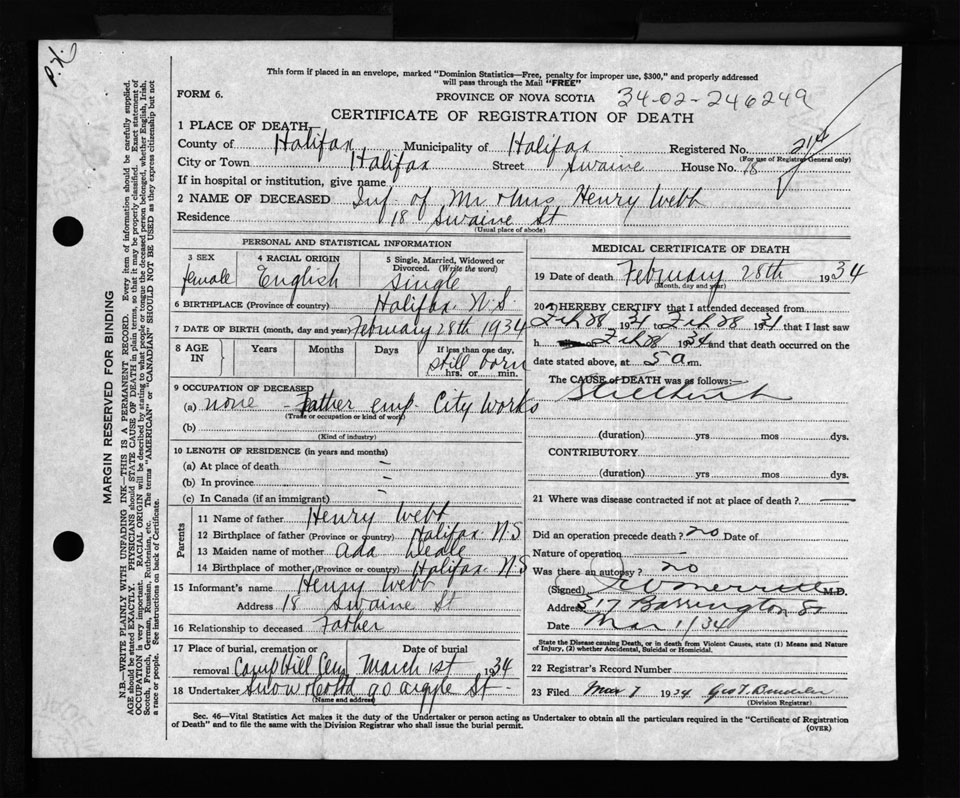 P.X.
This form if placed in an envelope, marked "Dominion Statistics—Free, penalty for improper use, $300," and properly addressed
will pass through the Mail "FREE"
FORM 6.
PROVINCE OF NOVA SCOTIA 34-02-246249
CERTIFICATE OF REGISTRATION OF DEATH
1 PLACE OF DEATH
County of Halifax Municipality of Halifax Registered No.
(For use of Registrar General only)
City or Town Halifax Street Swaine House No. 18
If in hospital or institution, give name
2 NAME OF DECEASED Inf. of Mr & Mrs Henry Webb
Residence 18 Swaine St
(Usual place of abode)
PERSONAL AND STATISTICAL INFORMATION
3 SEX
female
4 RACIAL ORIGIN
English
5 Single, Married, Widowed or
Divorced. (Write the word)
Single
6 BIRTHPLACE (Province or country) Halifax N.S.
7 DATE OF BIRTH (month, day and year) February 28th 1934
8 AGE
IN
Years
Months
Days
If less than one day,
still born
hrs. or min.
9 OCCUPATION OF DECEASED
(a) none - Father emp City Works
(Trade or occupation or kind of work)
(b)
(Kind of industry)
10 LENGTH OF RESIDENCE (in years and months)
(a) At place of death –
(b) In province –
(c) In Canada (if an immigrant) –
Parents
11 Name of father Henry Webb
12 Birthplace of father (Province or country) Halifax N.S
13 Maiden name of mother Ada Deale
14 Birthplace of mother (Province or country) Halifax N.S
15 Informant's name Henry Webb
Address 18 Swaine St
16 Relationship to deceased Father
17 Place of burial, cremation or Date of burial
removal Camp Hill Cem March 1st 1934
18 Undertaker Snow & Co Ltd 90 Argyle St.
(Name and address)
MEDICAL CERTIFICATE OF DEATH
19 Date of death February 28th 1934
(Month, day and year)
20 I HEREBY CERTIFY that I attended deceased from
Feb 28 1934 to Feb 28 1934 that I last saw
h Feb 28 1934 and that death occurred on the
date stated above, at 5 a m.
The CAUSE of DEATH was as follows:—
Stillbirth
(duration) yrs mos dys.
CONTRIBUTORY
(duration) yrs mos dys.
21 Where was disease contracted if not at place of death? —
Did an operation precede death? no Date of
Nature of operation
Was there an autopsy? no
(Signed) M.D.
Address 517 Barrington St
Date Mar 1/34
State the Disease causing Death, or in death from Violent Causes, state (1) Means and Nature
of Injury, (2) whether Accidental, Suicidal or Homicidal.
22 Registrar's Record Number
23 Filed Mar 7 1934 Geo T.
(Division Registrar)
Sec. 46—Vital Statistics Act makes it the duty of the Undertaker or person acting as Undertaker to obtain all the particulars required in the "Certificate of Registration
of Death" and to file the same with the Division Registrar who shall issue the burial permit.
(OVER)
MARGIN RESERVED FOR BINDING
N.B.—WRITE PLAINLY WITH UNFADING INK—THIS IS A PERMANENT RECORD. Every item of information should be carefully supplied.
AGE should be stated EXACTLY. PHYSICIANS should STATE CAUSE OF DEATH in plain terms, so that it may be properly classified. Exact statement of
OCCUPATION is very important. RACIAL ORIGIN will be described by stating to what people or tongue the deceased person belonged, whether English, Irish,
Scotch, French, German, Russian, Ruthenian, etc. The terms "AMERICAN" or "CANADIAN" SHOULD NOT BE USED as they express citizenship but not
a race or people. See instructions on back of Certificate.